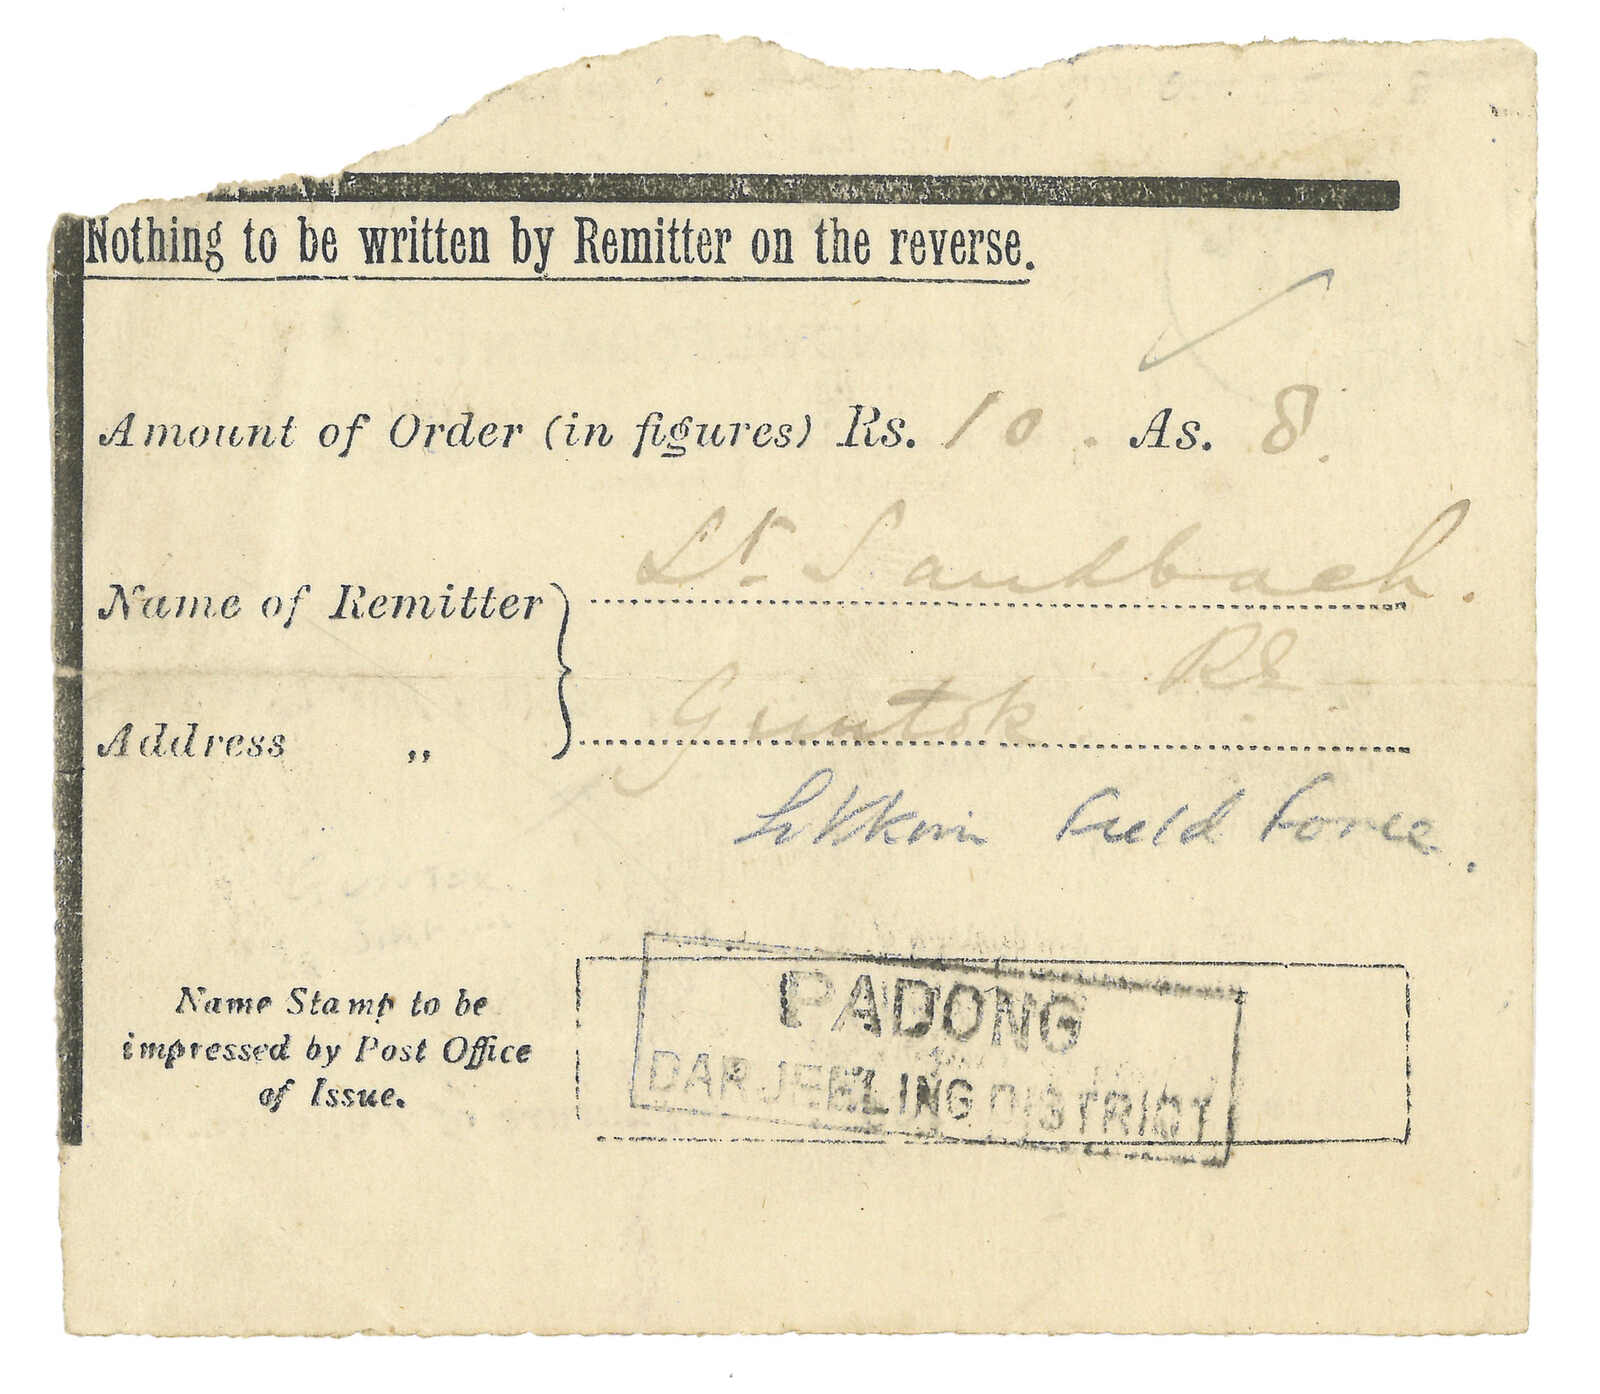 Nothing to be written by Remitter on the reverse.
Amount of Order (in figures) Rs. 10. As. 8.
Lt. Sandbach.
Name of Remitter
RE
Guntok
Address „
Sikkim Field Force.
Name Stamp to be
impressed by Post Office
of Issue.
PADONG
DARJEELING DISTRICT